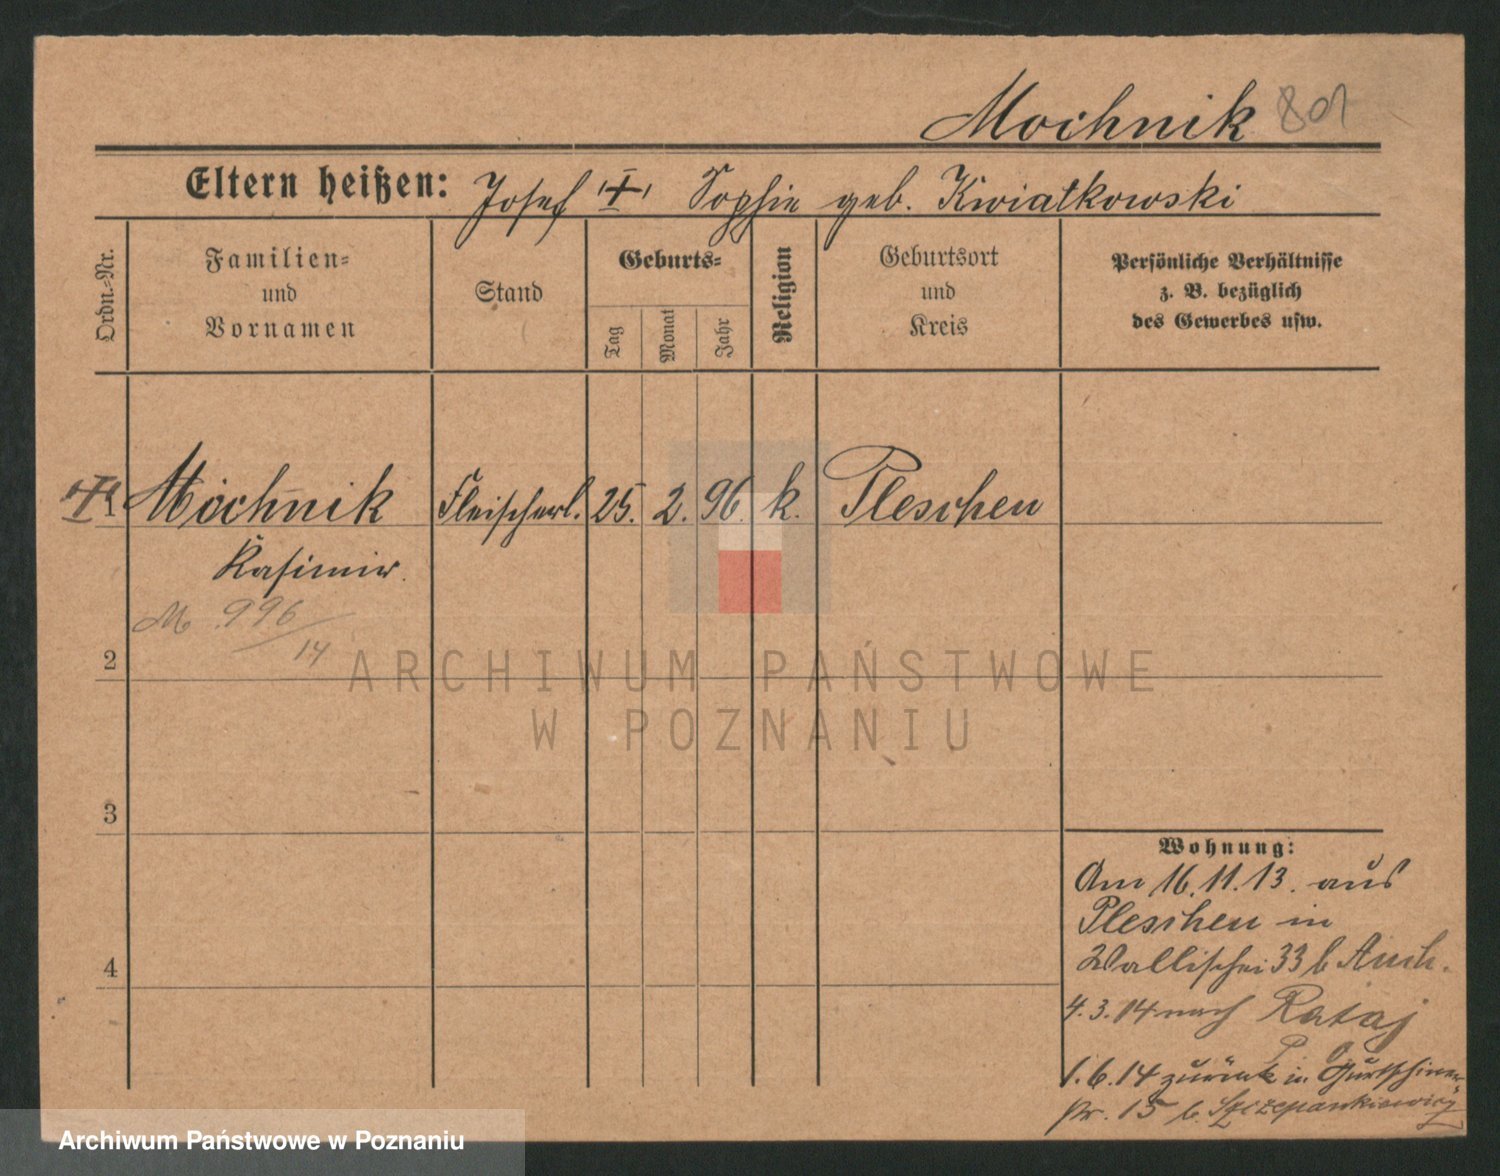 Mochnik 801
Eltern heißen: Josef Sophie geb. Kwiatkowski
Ordn.=Nr.
Familien=
und
Vornamen
Stand
Geburts=
Tag
Monat
Jahr
Religion
Geburtsort
und
Kreis
Persönliche Verhältnisse
z. B. bezüglich
des Gewerbes usw.
1 Mochnik Fleischerl. 25. 2. 96. k. Pleschen
Kasimir.
M 996
14
2
3
4
Wohnung:
Am 16.11.13. aus
Pleschen in
Wallischei 33 b
4.3.14 nach Rataj
1.6.14 zurück in
15 b. Szczepankiewicz
ARCHIWUM PAŃSTWOWE
W POZNANIU
Archiwum Państwowe w Poznaniu